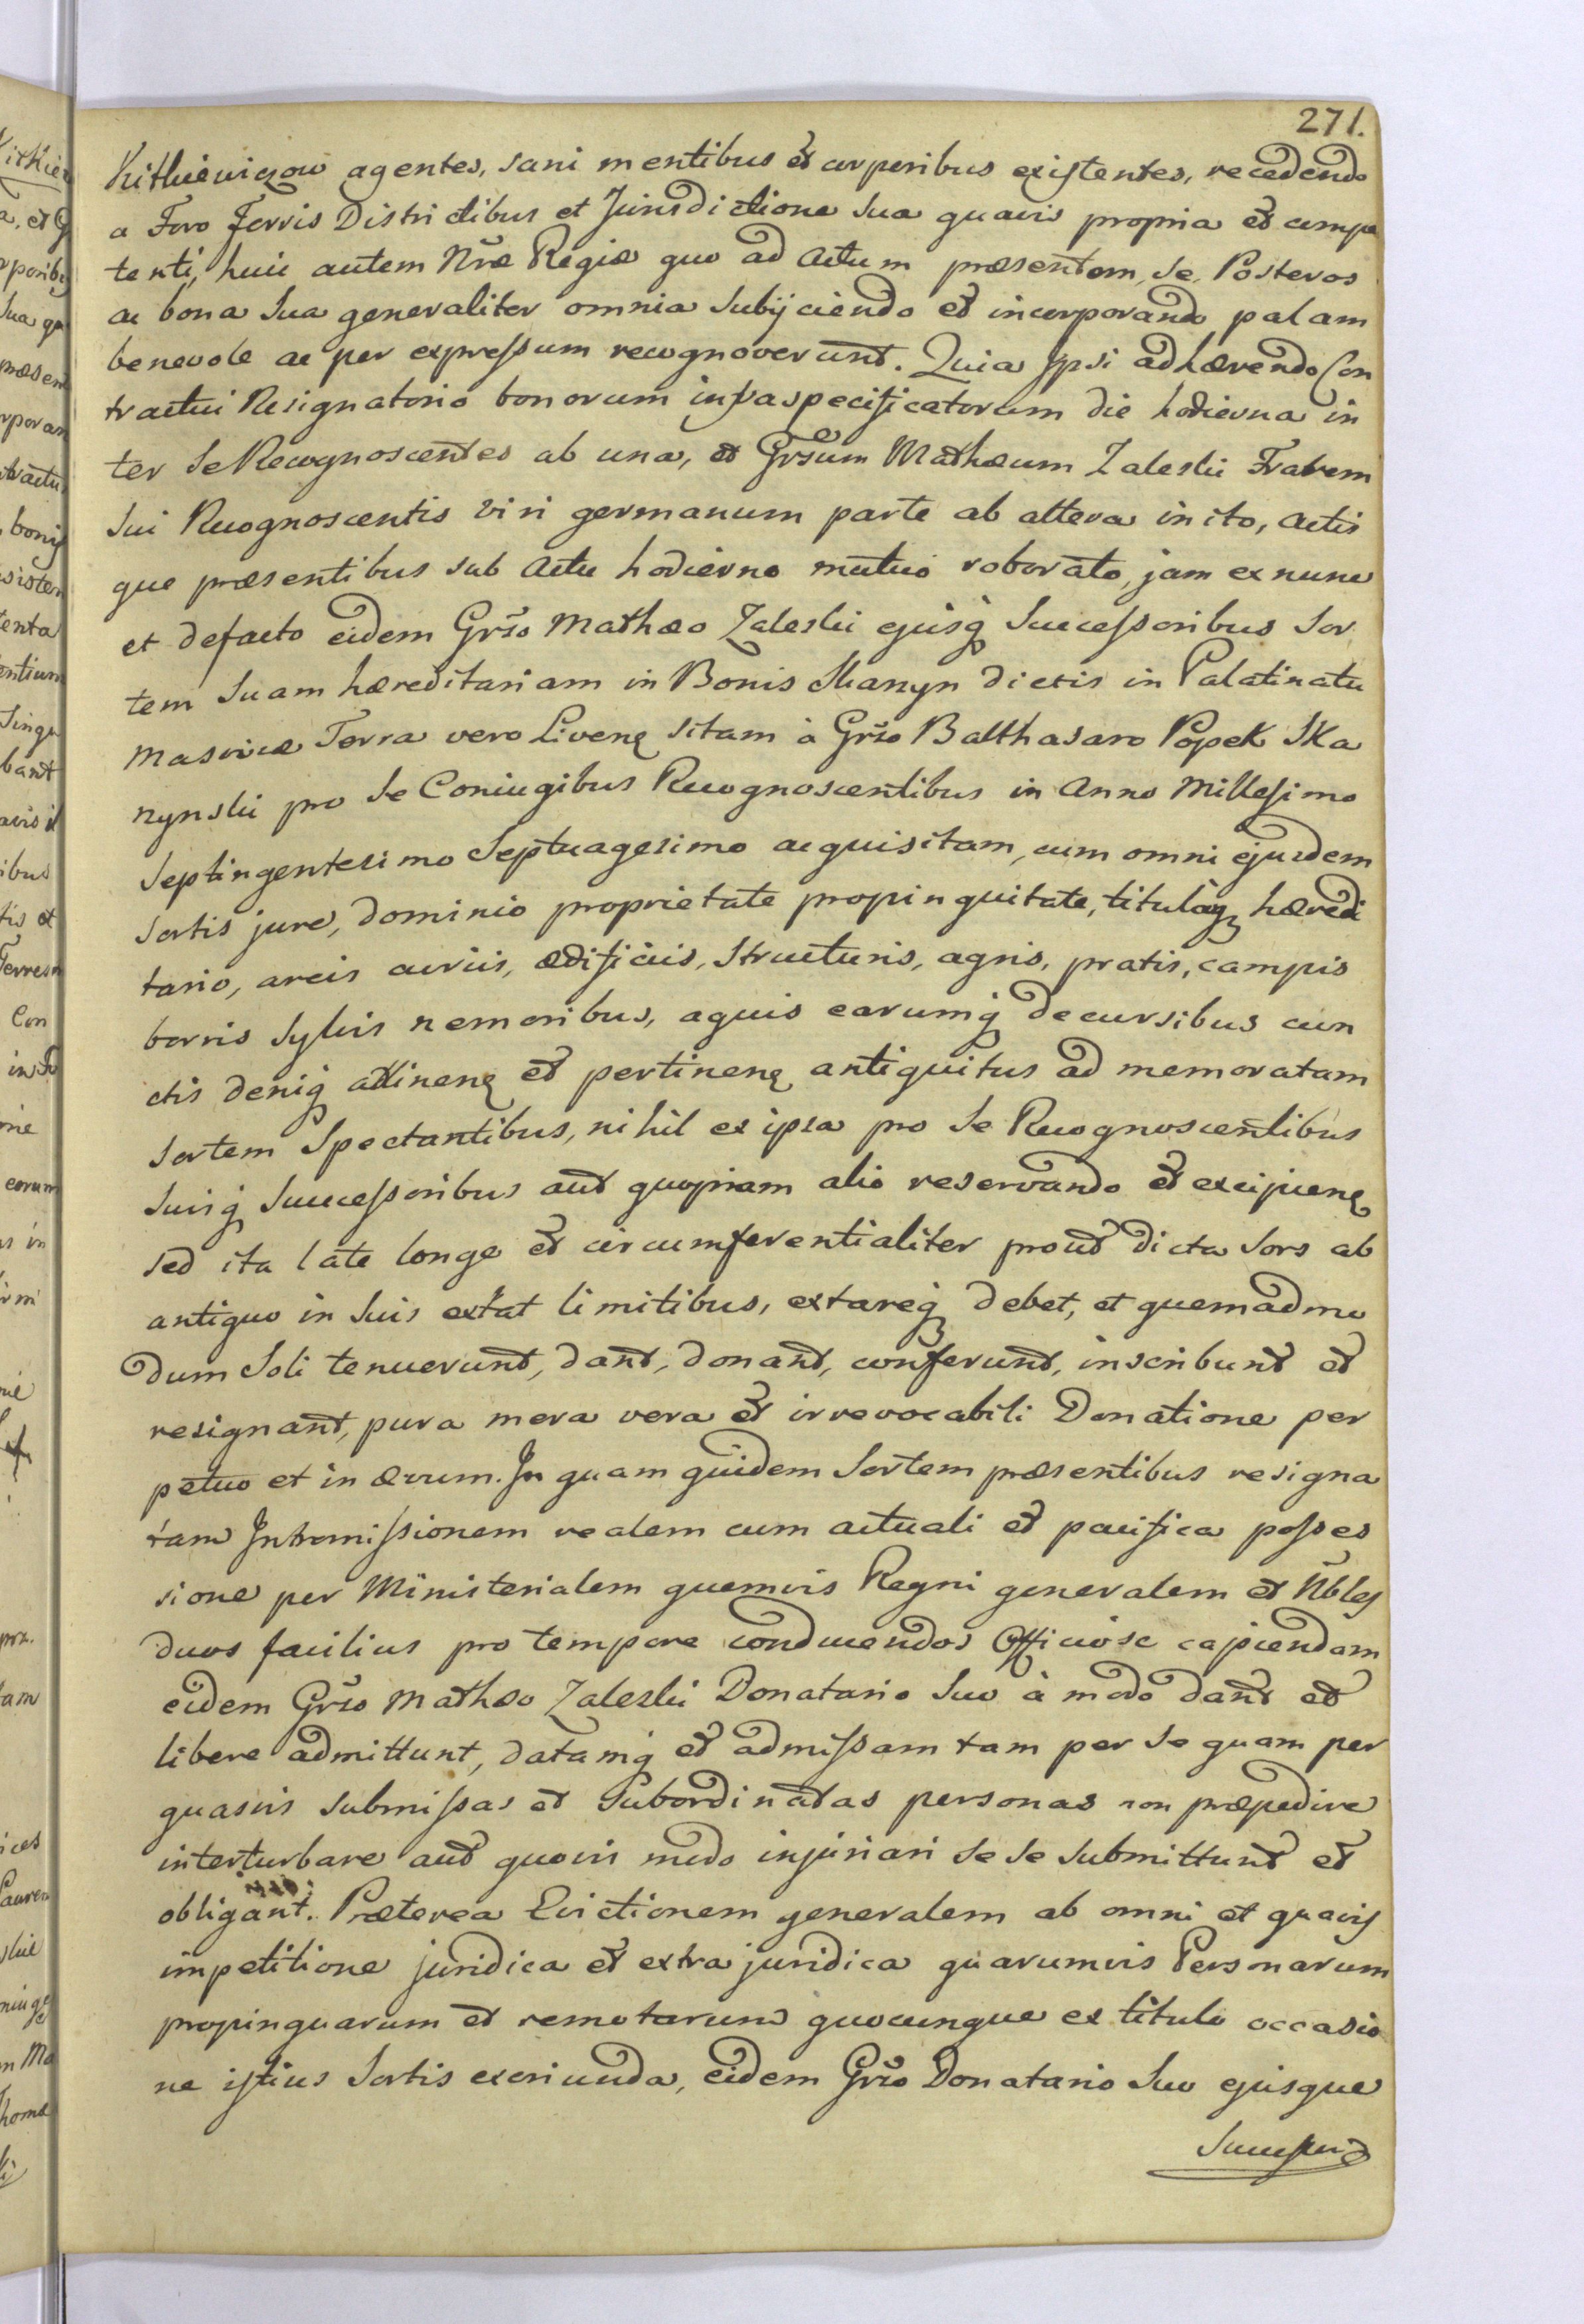 271.
Kitkiewiczow agentes, sani mentibus et corporibus existentes, recedendo
a Foro Terris Districtibus et Jurisdictione sua quavis propria et compe
tenti, huic autem Nrae Regiae quo ad actum praesentem, se, Posteros
ac bona sua generaliter omnia subijciendo et incorporando palam
benevole ac per expressum recognoverunt. Quia ipsi adhaerendo Con
tractui Resignatorio bonorum infraspecificatorum die hodierna in
ter se Recognoscentes ab una, et Grsum Mathaeum Zaleski Fratrem
sui Recognoscentis viri germanum parte ab altera inito, actis
que praesentibus sub actu hodierno mutuo roborato, jam ex nunc
et defacto eidem Grso Mathaeo Zaleski ejusq Successoribus Sor
tem suam haereditariam in Bonis Skanyn dictis in Palatinatu
Masoviae Terra vero Livenę sitam à Grso Balthasaro Popek Ska
nynski pro se Coniugibus Recognoscentibus in Anno Millesimo
Septingentesimo Septuagesimo acquisitam, cum omni ejusdem
sortis jure, dominio proprietate propinquitate, tituloq haeredi
tario, areis curiis, aedificiis, structuris, agris, pratis, campis
borris sylvis nemoribus, aquis earumq decursibus cun
ctis deniq attinenę et pertinenę antiquitus ad memoratam
sortem spectantibus, nihil ex ipsa pro se Recognoscentibus
suisq Successoribus aut quopiam alio reservando et excipienę
sed ita late longe et circumferentialiter prout dicta sors ab
antiquo in suis extat limitibus, extareq debet, et quemadmo
dum soli tenuerunt, dant, donant, conferunt, inscribunt et
resignant, pura mera vera et irrevocabili Donatione per
petuo et in aevum. In quam quidem Sortem praesentibus resigna
tam Intromissionem realem cum actuali et pacifica posses
sione per Ministerialem quemvis Regni generalem et Nbles
duos facilius pro tempore conducendos Officiose capiendam
eidem Grso Mathaeo Zaleski Donatario suo à modo dant et
libere admittunt, datamq et admissam tam per se quam per
quasvis submissas et subordinatas personas non praepedire
interturbare aut quovis modo injuriari se se submittunt et
obligant. Praeterea Evictionem generalem ab omni et quavis
impetitione juridica et extra juridica quarumvis Personarum
propinquarum et remotarum quocunque ex titulo occasio
ne istius Sortis exoriunda, eidem Grso Donatario suo ejusque